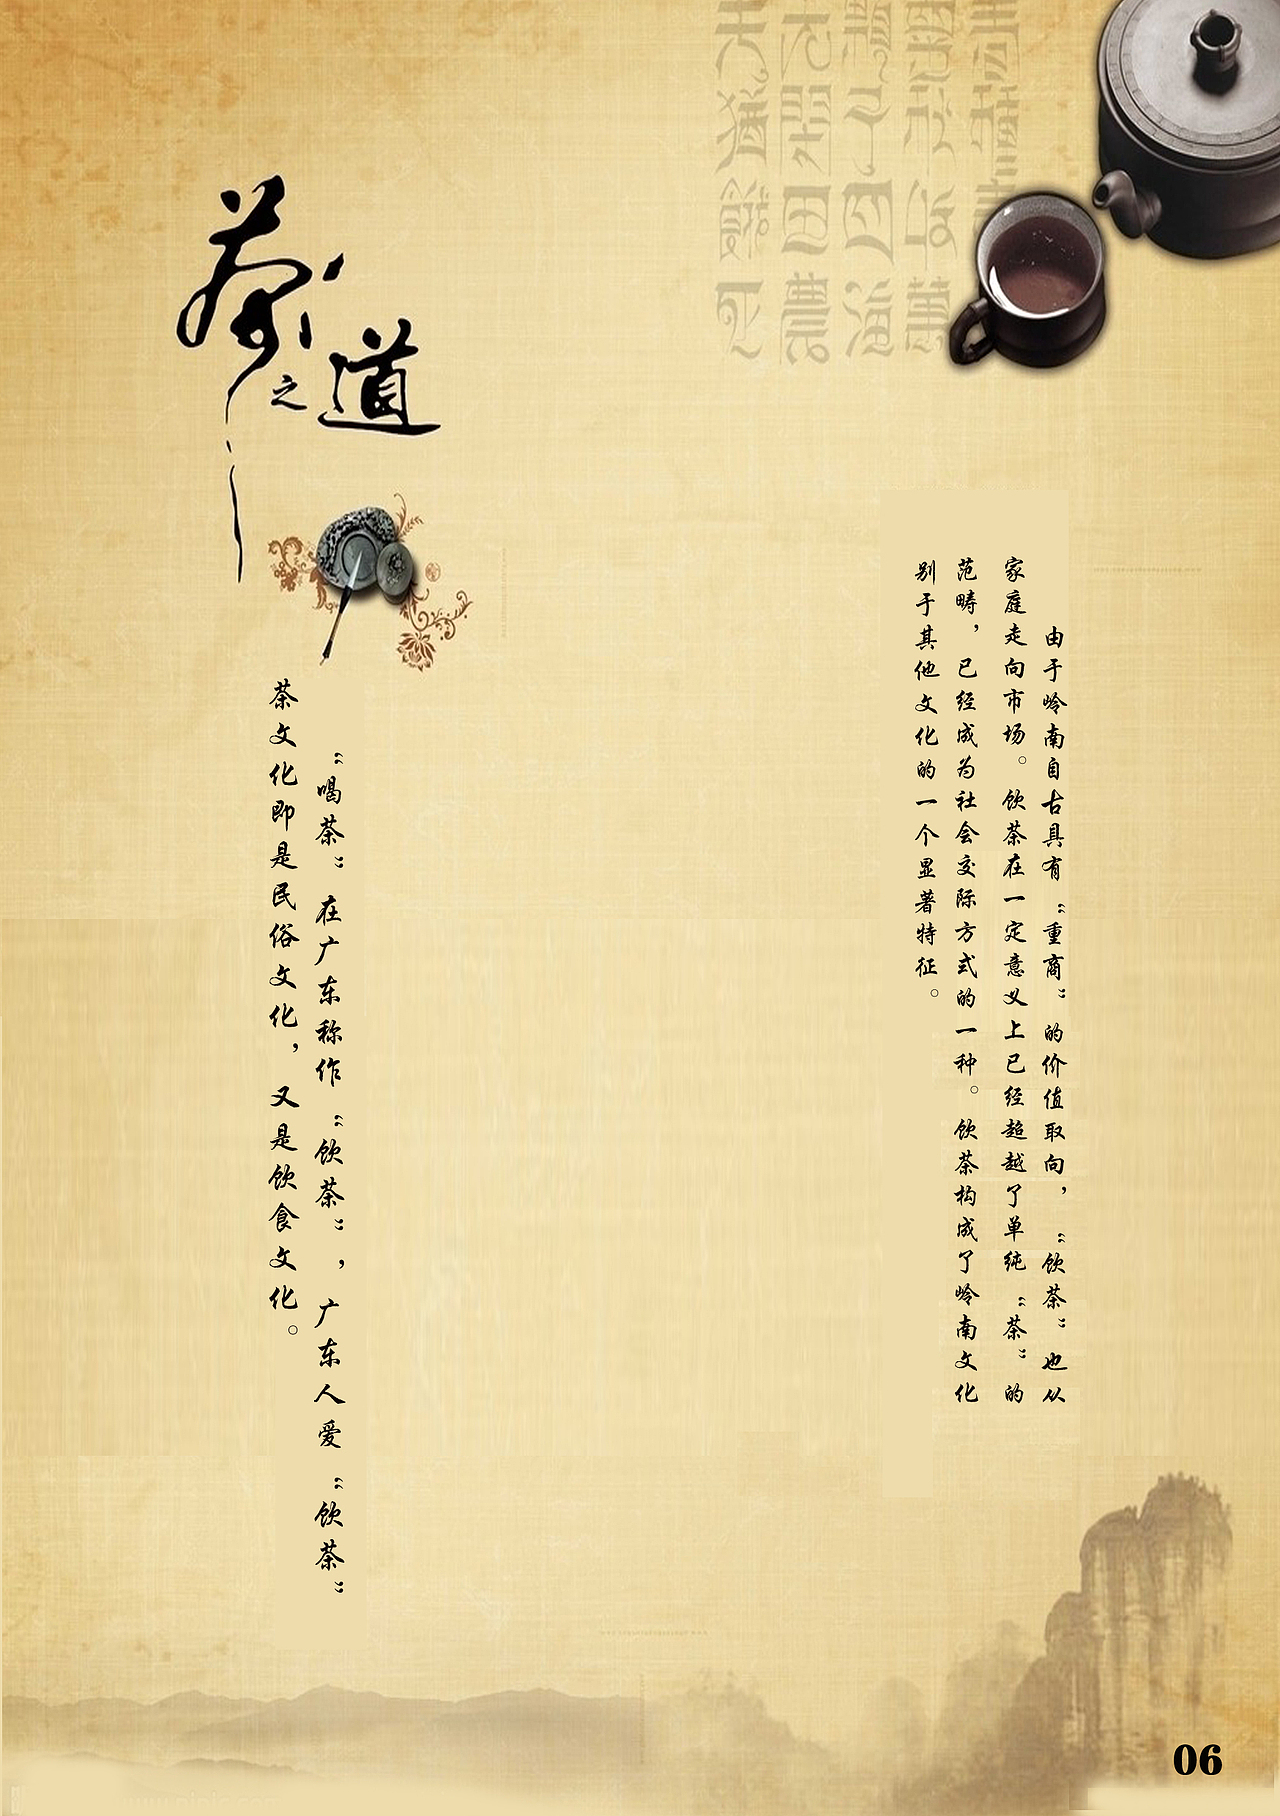 茶之道
由于岭南自古具有“重商”的价值取向，“饮茶”也从
家庭走向市场。饮茶在一定意义上已经超越了单纯“茶”的
范畴，已经成为社会交际方式的一种。饮茶构成了岭南文化
别于其他文化的一个显著特征。
“喝茶”在广东称作“饮茶”，广东人爱“饮茶”
茶文化即是民俗文化，又是饮食文化。
06